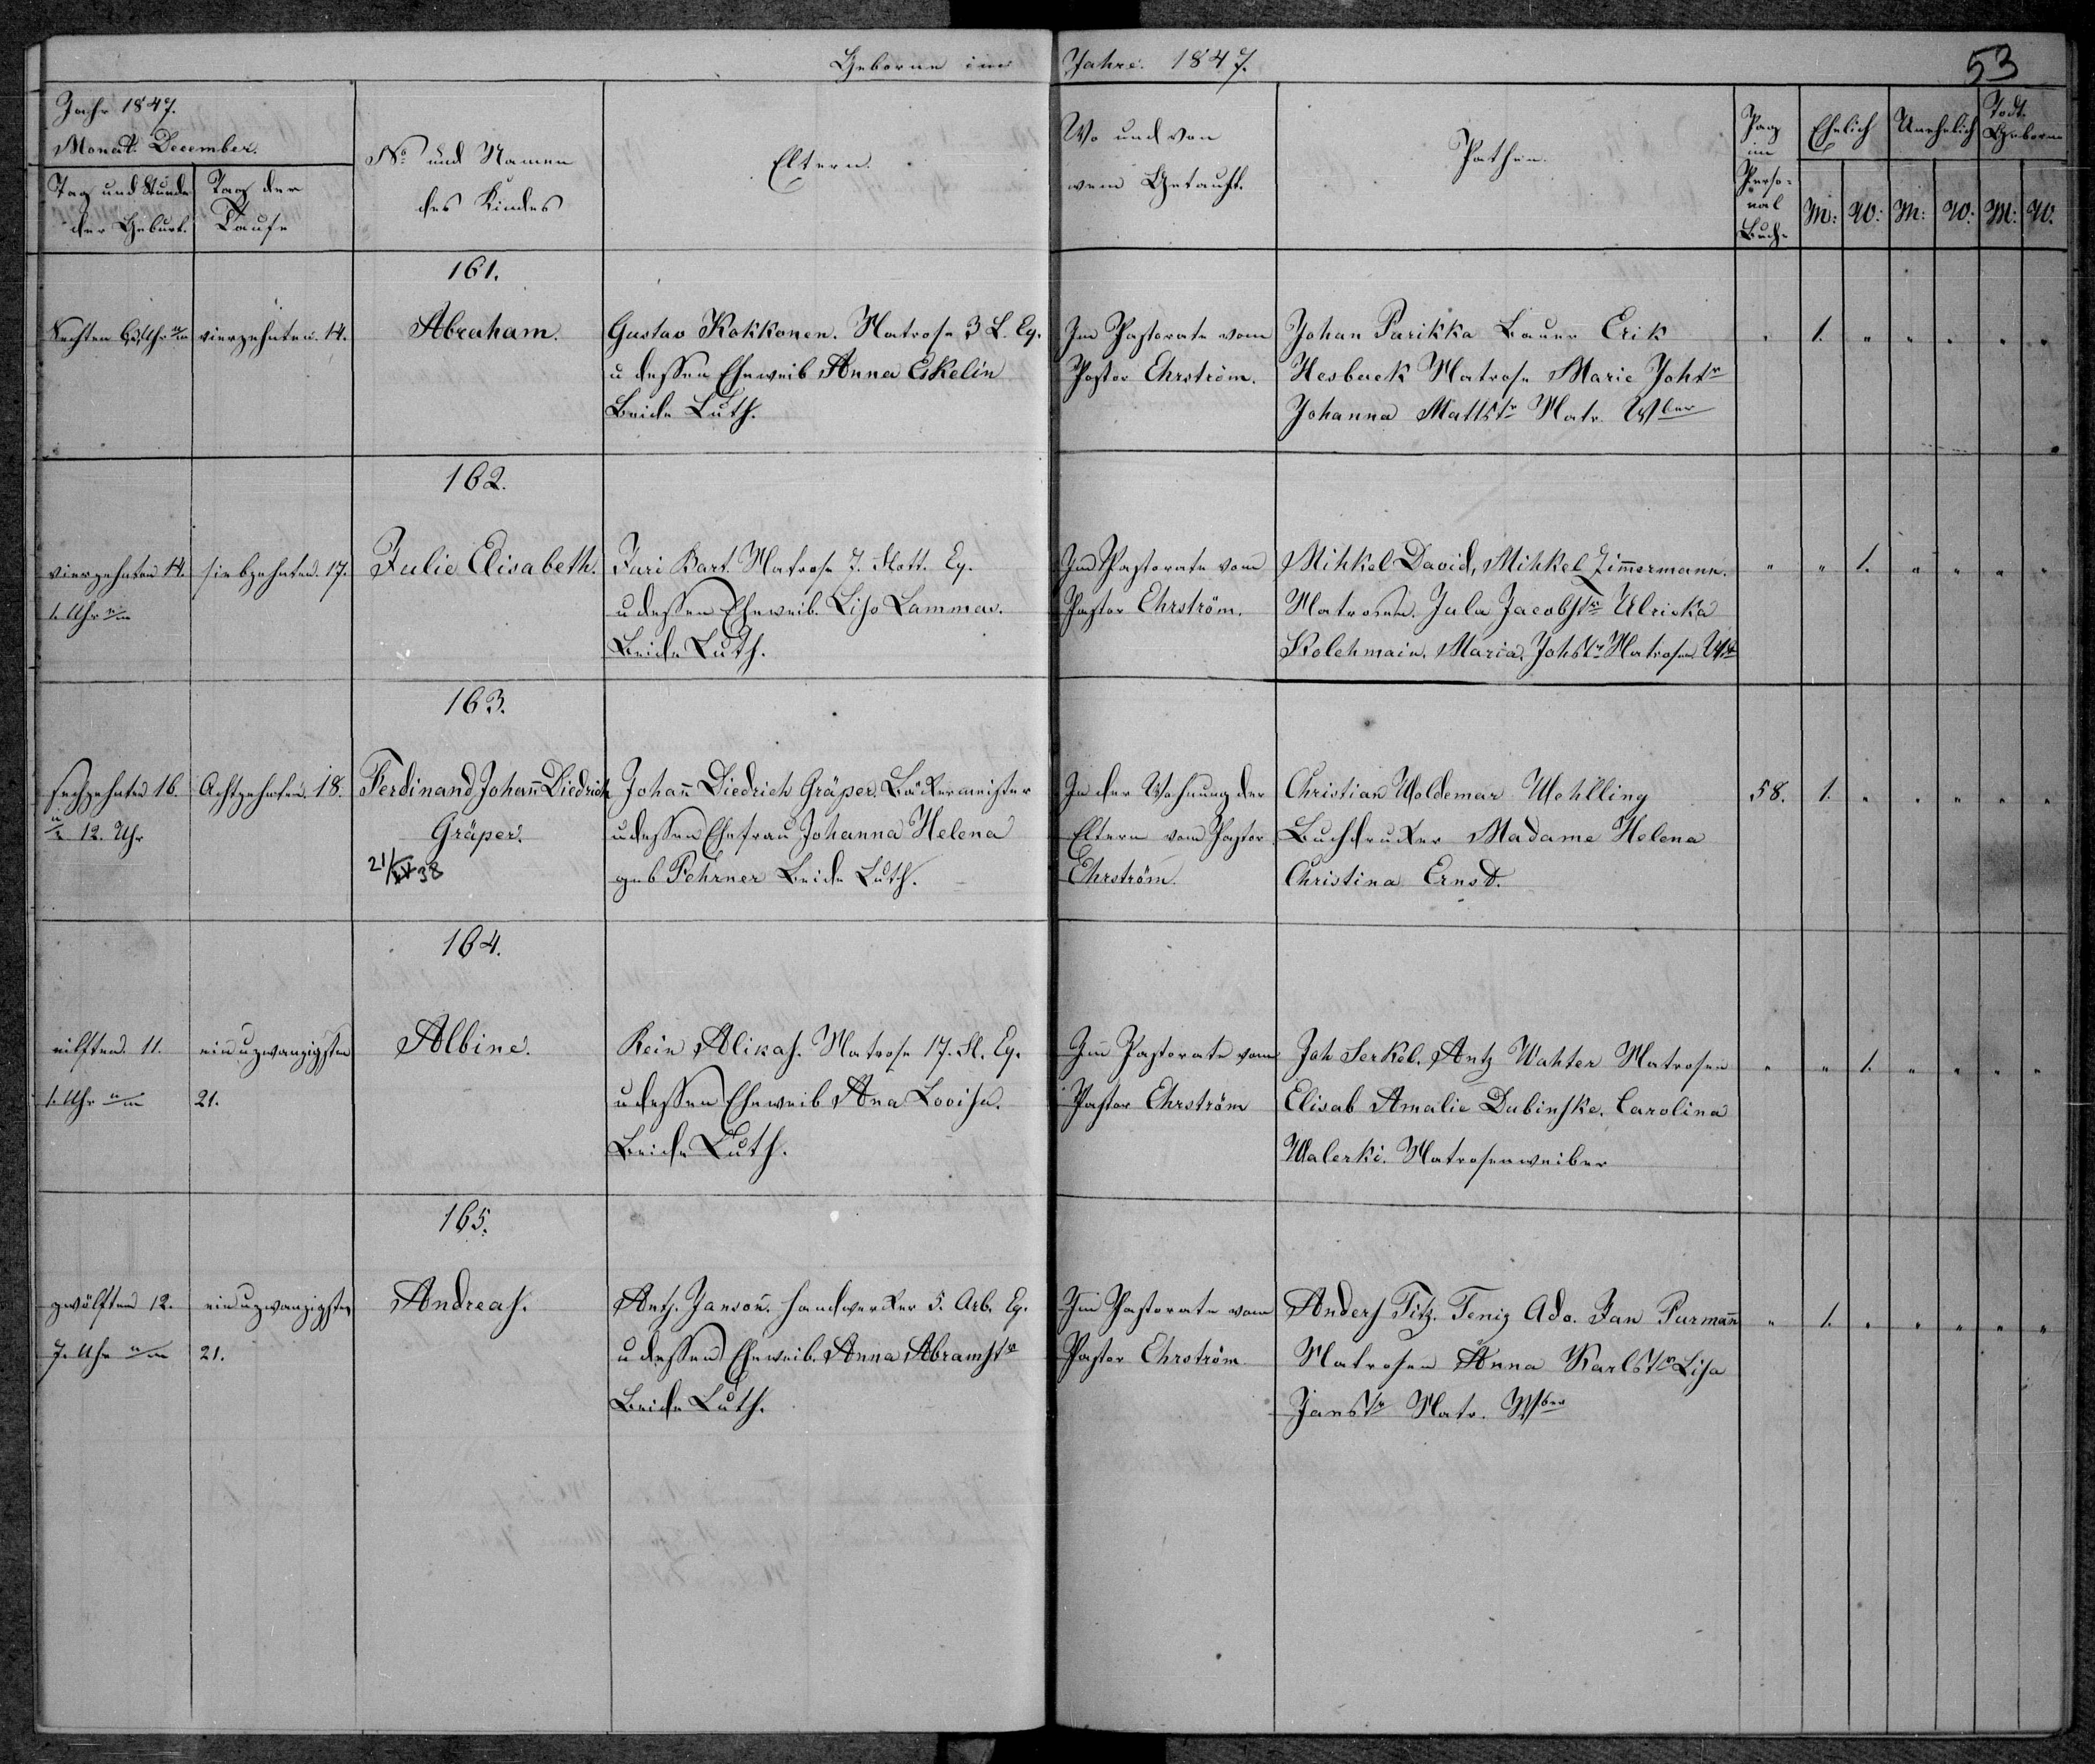 Geborne im Jahre 1847.
53
Jahr 1847.
Monat. December.
Tag und Stunde
der Geburt.
Tag der
Taufe
No und Namen
des Kindes
Eltern.
Wo und von
wem Getauft.
Pathen.
Pag
im
Perso-
nal
Buch
Ehelich
Unehelich
Todt.
Geborne
M: W: M: W: M: W.
161.
Sechsten 6, Uhr
vierzehnten. 14.
Abraham.
Gustav Kokkonen. Matrose 3 L. Eq.
u dessen Eheweib Anna Eskelin
Beide Luth.
Im Pastorate vom
Pastor Ehrström.
Johan Parikka Bauer Erik
Hesbaek Matrose Marie Johstr
Johanna Mattstr Matr. Wber
" 1. " " " " "
162.
vierzehnten 14.
1. Uhr
siebzehnten. 17.
Julie Elisabeth.
Juri Kart. Matrose 7. Flott. Eq.
u dessen Eheweib. Liso Lammas.
Beide Luth.
Im Pastorate vom
Pastor Ehrström.
Mihkel David, Mihkel Zimmermann.
Matrosen. Jula Jacobstr Ulricka
Kolehmain. Maria. Johstr Matrosen
" " 1. " " " "
163.
sechzehnten 16.
12. Uhr
Achtzehnten. 18.
Ferdinand Johann Diedrich
Gräper.
21/IV 38
Johann Diedrich Gräper. Bäkermeister
u dessen Ehefrau Johanna Helena
geb Fehrner Beide Luth.
In der Wohnung der
Eltern vom Pastor
Ehrström.
Christian Woldemar Wehlling
Buchdruker Madame Helena
Christina Ernst.
58. 1. " " " " "
164.
eilften 11.
1. Uhr
einuzwanzigsten
21.
Albine.
Rein Alikas. Matrose 17. Fl. Eq.
u dessen Eheweib Ana Looisa.
Beide Luth.
Im Pastorate vom
Pastor Ehrström
Joh Serkel. Antz Wahter Matrosen
Elisab Amalie Dubinske. Carolina
Walerki. Matrosenweiber
" " 1. " " " "
165.
zwölften 12.
7. Uhr
einuzwanzigsten
21.
Andreas.
Antz. Janson. Handwerker 5. Arb. Eq.
u dessen Eheweib. Anna Abramstr
Beide Luth.
Im Pastorate vom
Pastor Ehrström.
Anders Titz. Teniz Ado. Jan Purmann
Matrosen Anna Karlstr Lisa
Janstr Matr. Wber
" 1. " " " " "